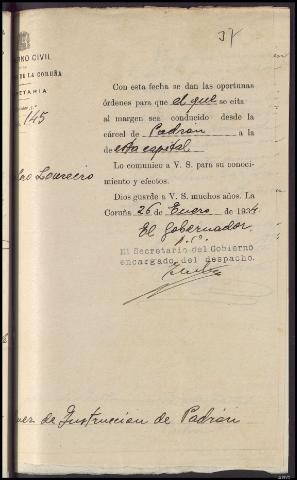 37
RNO CIVIL
DE LA CORUÑA
ETARIA
145
Con esta fecha se dan las oportunas
órdenes para que el que se cita
al margen sea conducido desde la
cárcel de Padron a la
de esta capital
dro Loureiro
Lo comunico a V. S. para su conoci-
miento y efectos.
Dios guarde a V. S. muchos años. La
Coruña 26 de Enero de 1934
El Gobernador
El Secretario del Gobierno
encargado del despacho,
uez de Instruccion de Padrón